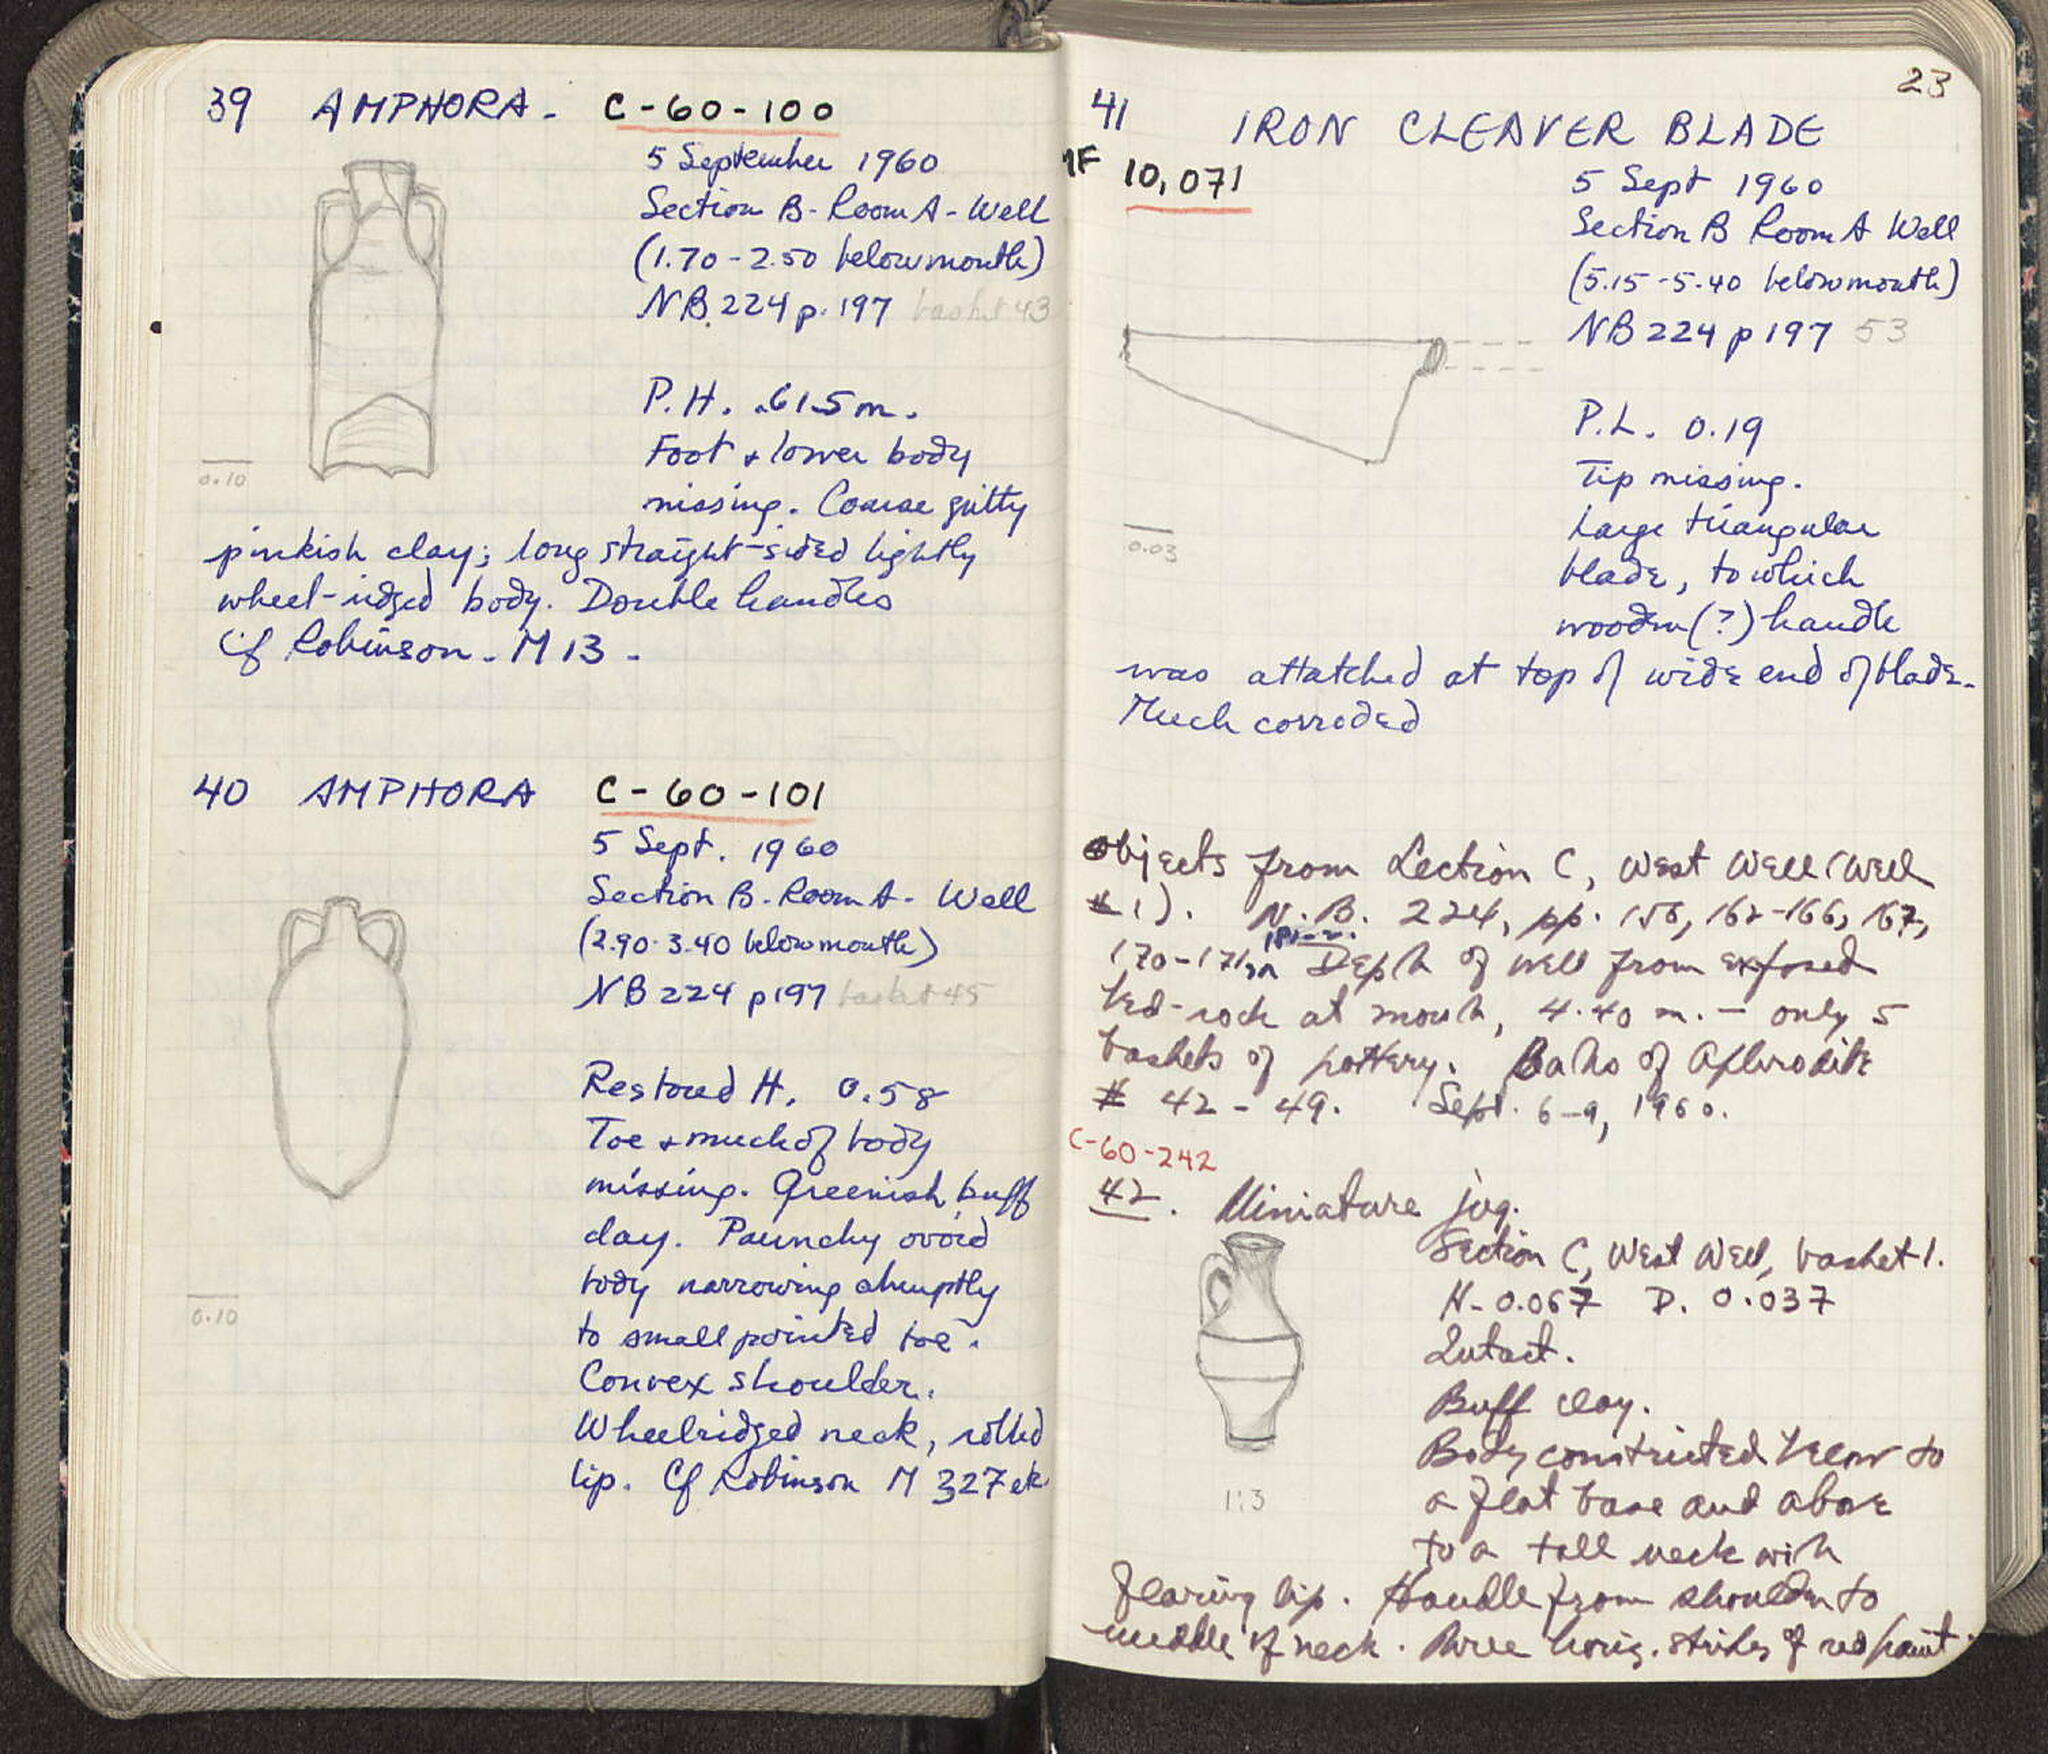 39 AMPHORA - C-60-100
5 September 1960
Section B - Room A - Well
(1.70 - 2.50 below mouth)
NB 224 p. 197 basket 43
P.H. .615m.
Foot + lower body
missing. Coarse gritty
pinkish clay; long straight-sided lightly
wheel-ridged body. Double handles
Cf Robinson - M 13 -
0.10
40 AMPHORA C-60-101
5 Sept. 1960
Section B - Room A - Well
(2.90-3.40 below mouth)
NB 224 p 197 basket 45
Restored H. 0.58
Toe + much of body
missing. Greenish buff
clay. Paunchy ovoid
body narrowing abruptly
to small pointed toe.
Convex shoulder.
Wheelridged neck, rolled
lip. Cf Robinson M 327 etc
0.10
23
41 IRON CLEAVER BLADE
MF 10,071
5 Sept 1960
Section B Room A Well
(5.15-5.40 below mouth)
NB 224 p 197 53
P.L. 0.19
Tip missing.
Large triangular
blade, to which
wooden (?) handle
was attatched at top of wide end of blade.
Much corroded
0.03
Objects from Section C, West Well (Well
# 1). N.B. 224, pp. 156, 162-166, 167,
170-171, 181-2. Depth of well from exposed
bed-rock at mouth, 4.40 m. - only 5
baskets of pottery. Baths of Aphrodite
# 42 - 49. Sept. 6-9, 1960.
C-60-242
42. Miniature jug.
Section C, West Well, basket 1.
H. 0.067 D. 0.037
Intact.
Buff clay.
Body constricted below to
a flat base and above
to a tall neck with
flaring lip. Handle from shoulder to
middle of neck. Three horiz. stripes of red paint.
1:3